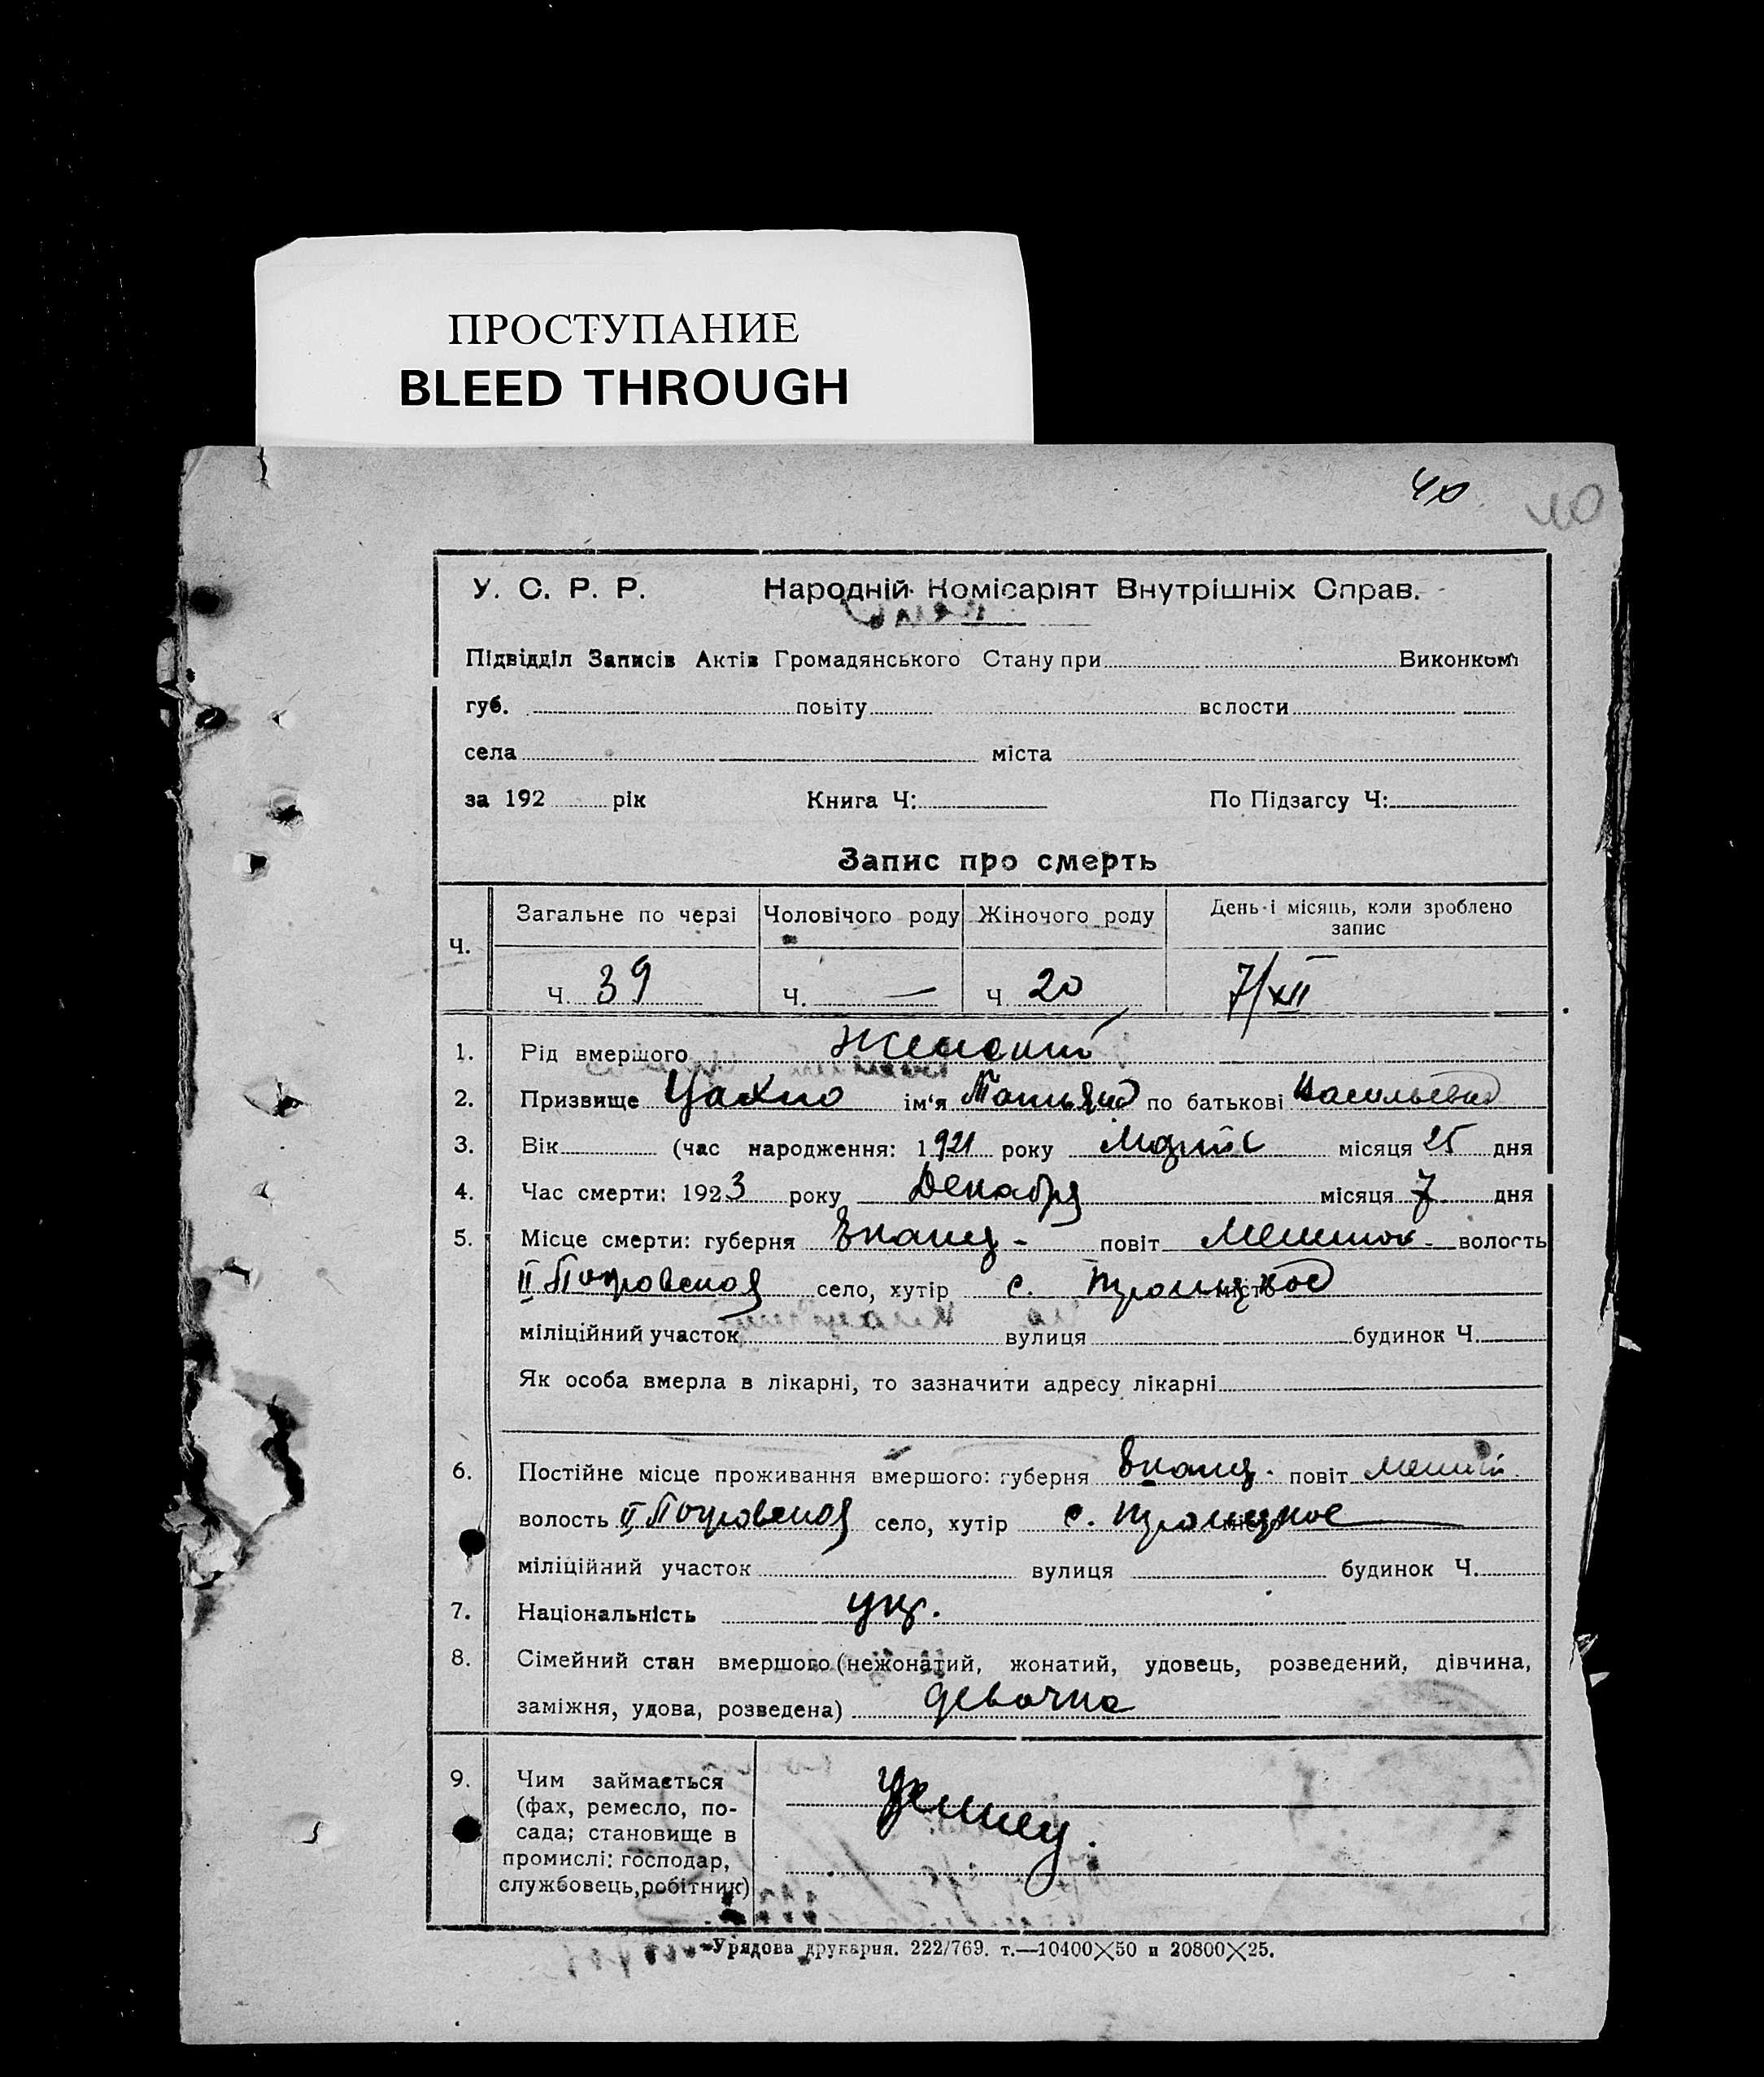 ПРОСТУПАНИЕ
BLEED THROUGH
40
У. С. Р. Р. Народній Комісаріят Внутрішніх Справ.
Підвідділ Записів Актів Громадянського Стану при Виконком
губ. повіту волости
села міста
за 192 рік Книга Ч: По Підзагсу Ч:
Запис про смерть
Ч. Загальне по черзі Чоловічого роду Жіночого роду День і місяць, коли зроблено запис
Ч. 39 Ч. — Ч 20 7/XII
1. Рід вмершого Женский
2. Призвище Цахно ім'я Татьяна по батькові Васильевна
3. Вік (час народження: 1921 року місяця 25 дня
4. Час смерти: 1923 року Декабря місяця 7 дня
5. Місце смерти: губерня Екатер- повіт волость
II Покровская село, хутір с. Троицкое місто
міліційний участок вулиця будинок Ч.
Як особа вмерла в лікарні, то зазначити адресу лікарні
6. Постійне місце проживання вмершого: губерня повіт
волость II Покровская село, хутір с. Троицкое місто
міліційний участок вулиця будинок Ч.
7. Національність укр.
8. Сімейний стан вмершого (нежонатий, жонатий, удовець, розведений, дівчина,
заміжня, удова, розведена) девочка
9. Чим займається
(фах, ремесло, по-
сада; становище в
промислі: господар,
службовець, робітник)
Урядова друкарня. 222/769. т.—10400×50 и 20800×25.